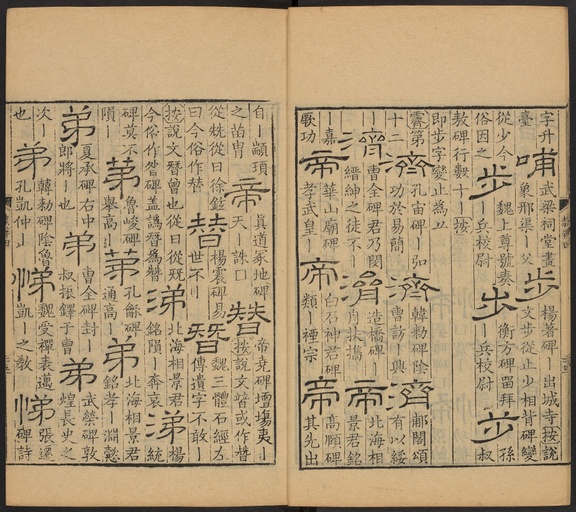 字升臺 哺 武梁祠堂畫象邢渠丨父 步 楊著碑丨出城寺按說文步從止少相背碑變
從少今俗因之 步 魏上尊號奏丨兵校尉 步 衡方碑留拜丨兵校尉 步 孫叔
敖碑行轂十丨按即步字變止為山
霽第十二 濟 孔宙碑丨弘功於易簡 濟 韓勑碑陰曹訪丨興 濟 郙閣頌有以綏
濟 曹全碑乃閔縉紳之徒不丨 濟 造橋碑丨舟扶攜 帝 北海相景君銘
丨嘉厥功 帝 華山廟碑孝武皇丨 帝 白石神君碑類丨禋宗 帝 高頤碑其先出
自丨顓頊之苗冑 帝 真道冢地碑天丨誅□ 替 帝堯碑壇場夷丨按說文朁或作
從兟從曰徐鉉曰今俗作替 替 楊震碑易世不丨 朁 魏三體石經左傳遺字不敢丨
按說文朁曾也從曰從兓今俗作碑蓋譌朁為替 涕 北海相景君銘隕丨奔哀 涕 楊統
碑莫不隕丨 弟 魯峻碑舉高丨 弟 孔龢碑通高丨 弟 北海相景君銘孝丨淵懿
弟 夏承碑右中郎將丨也 弟 曹全碑封丨叔振鐸于曹 弟 武榮碑敦煌長史之
次丨也 弟 韓勑碑陰魯孔凱仲丨 悌 魏受禪表邁凱丨之教 悌 張遷碑詩